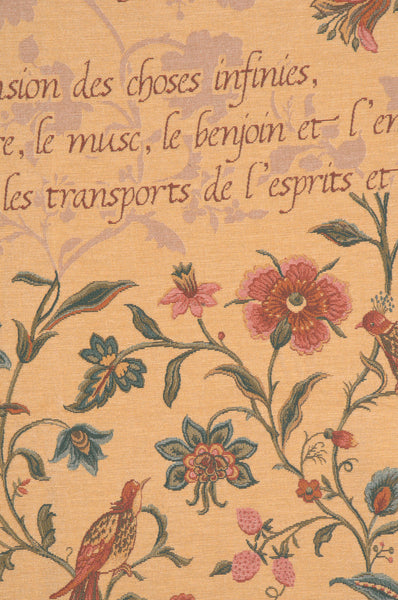 nsion des choses infinies,
re, le musc, le benjoin et l'en
les transports de l'esprits et